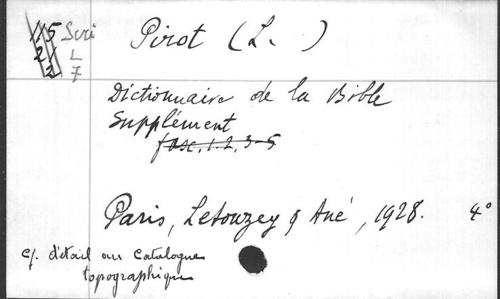 115 Scri
2 L
2 7
Pirot (L. )
Dictionnaire de la Bible
Supplément
fasc. 1. 2, 3-5
Paris, Letouzey & Ané, 1928. 4°
cf. détail au Catalogue
topographique